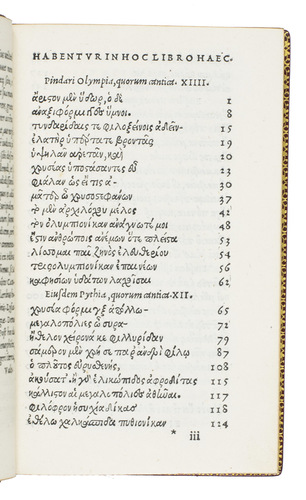 HABENTVR IN HOC LIBRO HAEC.
Pindari Olympia, quorum cantica. XIIII.
ἄριστον μὲν ὕδωρ, ὁ δὲ 1
ἀναξιφόρμιγγες ὕμνοι. 8
τυνδαρίδαις τε φιλοξείνοις ἁδεῖν 15
ἐλατὴρ ὑπέρτατε βροντᾶς 19
ὑψηλᾶν ἀρετᾶν, καὶ 21
χρυσέας ὑποστάσαντες 23
φιάλαν ὡς εἴ τις ἀ 30
μᾶτερ ὦ χρυσοστεφάνων 37
τὸ μὲν ἀρχιλόχου μέλος 42
τὸν ὀλυμπιονίκαν ἀνάγνωτέ μοι 48
ἔστιν ἀνθρώποις ἀνέμων ὅτε πλεῖστα 53
λίσσομαι παῖ ζηνὸς ἐλευθερίου 54
τρισολυμπιονίκαν ἐπαινέων 56
καφησίων ὑδάτων λαχοῖσαι 61
Eiusdem Pythia, quorum cantica. XII.
χρυσέα φόρμιγξ ἀπόλλω 65
μεγαλοπόλιες ὦ συρα 72
ἤθελον χείρωνά κε φιλλυρίδαν 79
σάμερον μὲν χρή σε παρ' ἀνδρὶ φίλῳ 87
ὁ πλοῦτος εὐρυσθενὴς, 108
ἀκούσατ' ἢ γὰρ ἑλικώπιδος ἀφροδίτας 115
κάλλιστον αἱ μεγαλοπόλιες ἀθᾶναι. 117
φιλόφρον ἡσυχία δίκας 118
ἐθέλω χαλκάσπιδα πυθιονίκαν 124
* iii